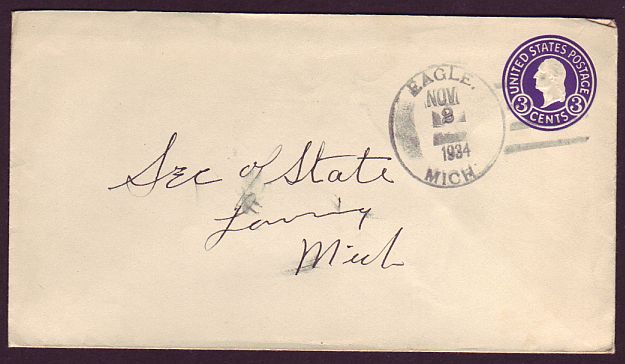 UNITED STATES POSTAGE
3 CENTS 3
EAGLE.
NOV
9
1934
MICH.
Sec of State
Lansing
Mich